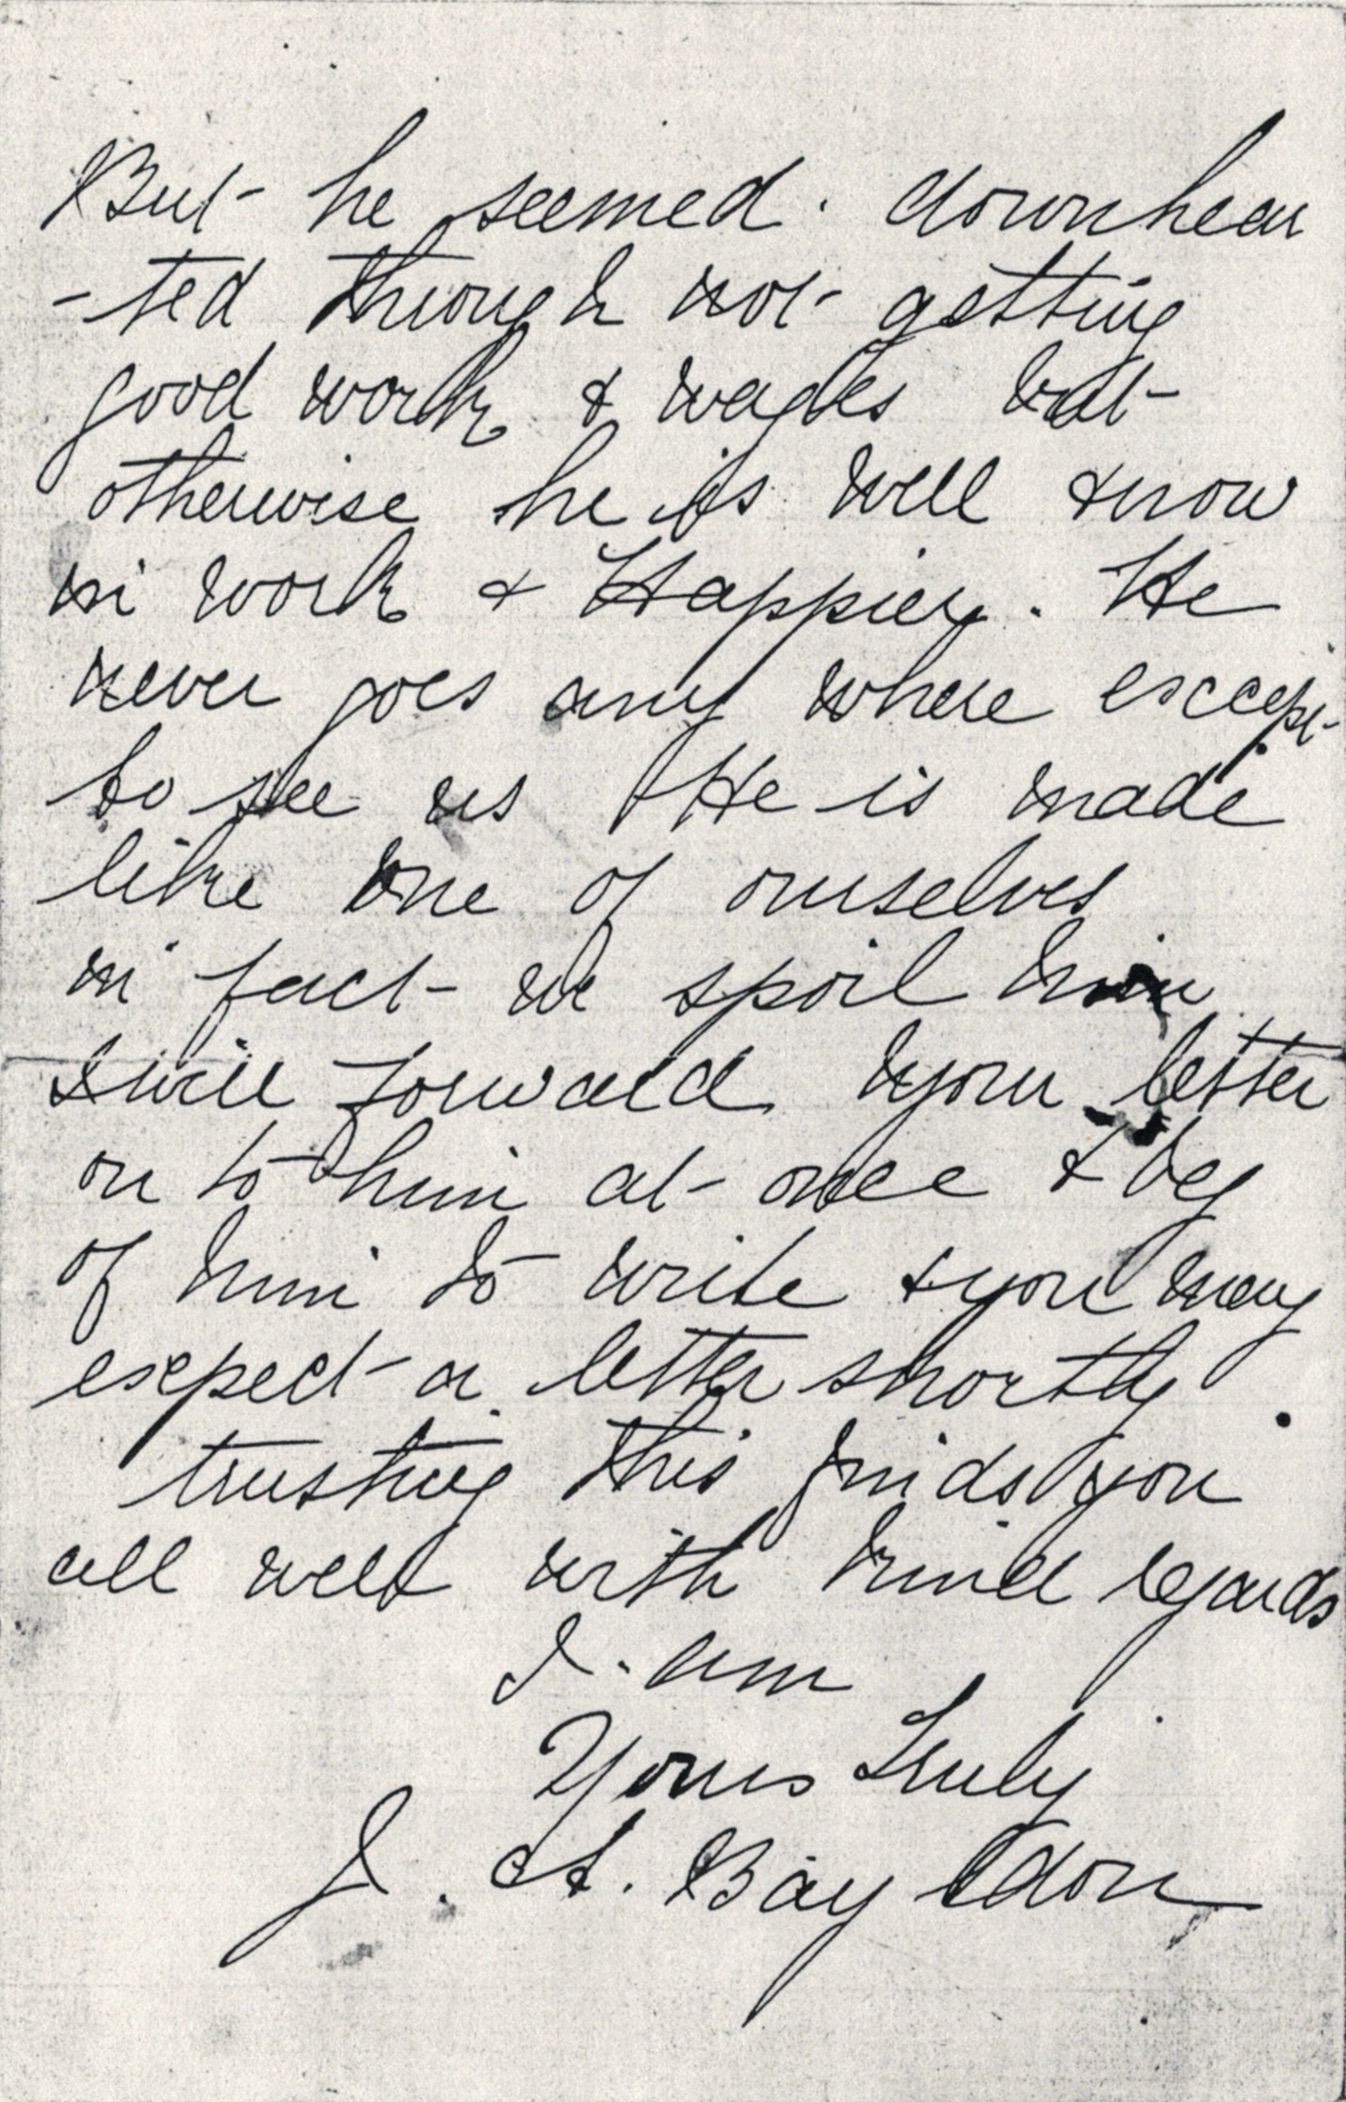 But he seemed. downhear
-ted through not getting
good work & wages but
otherwise he is well & now
in work & Happier. He
never goes any where except
to see us He is made
like one of ourselves
in fact we spoil him
I will forward your letter
on to him at once & beg
of him to write & you may
expect a letter shortly.
trusting this finds you
all well with kind regards
I. am
Yours Truly
J. A. Bayldon